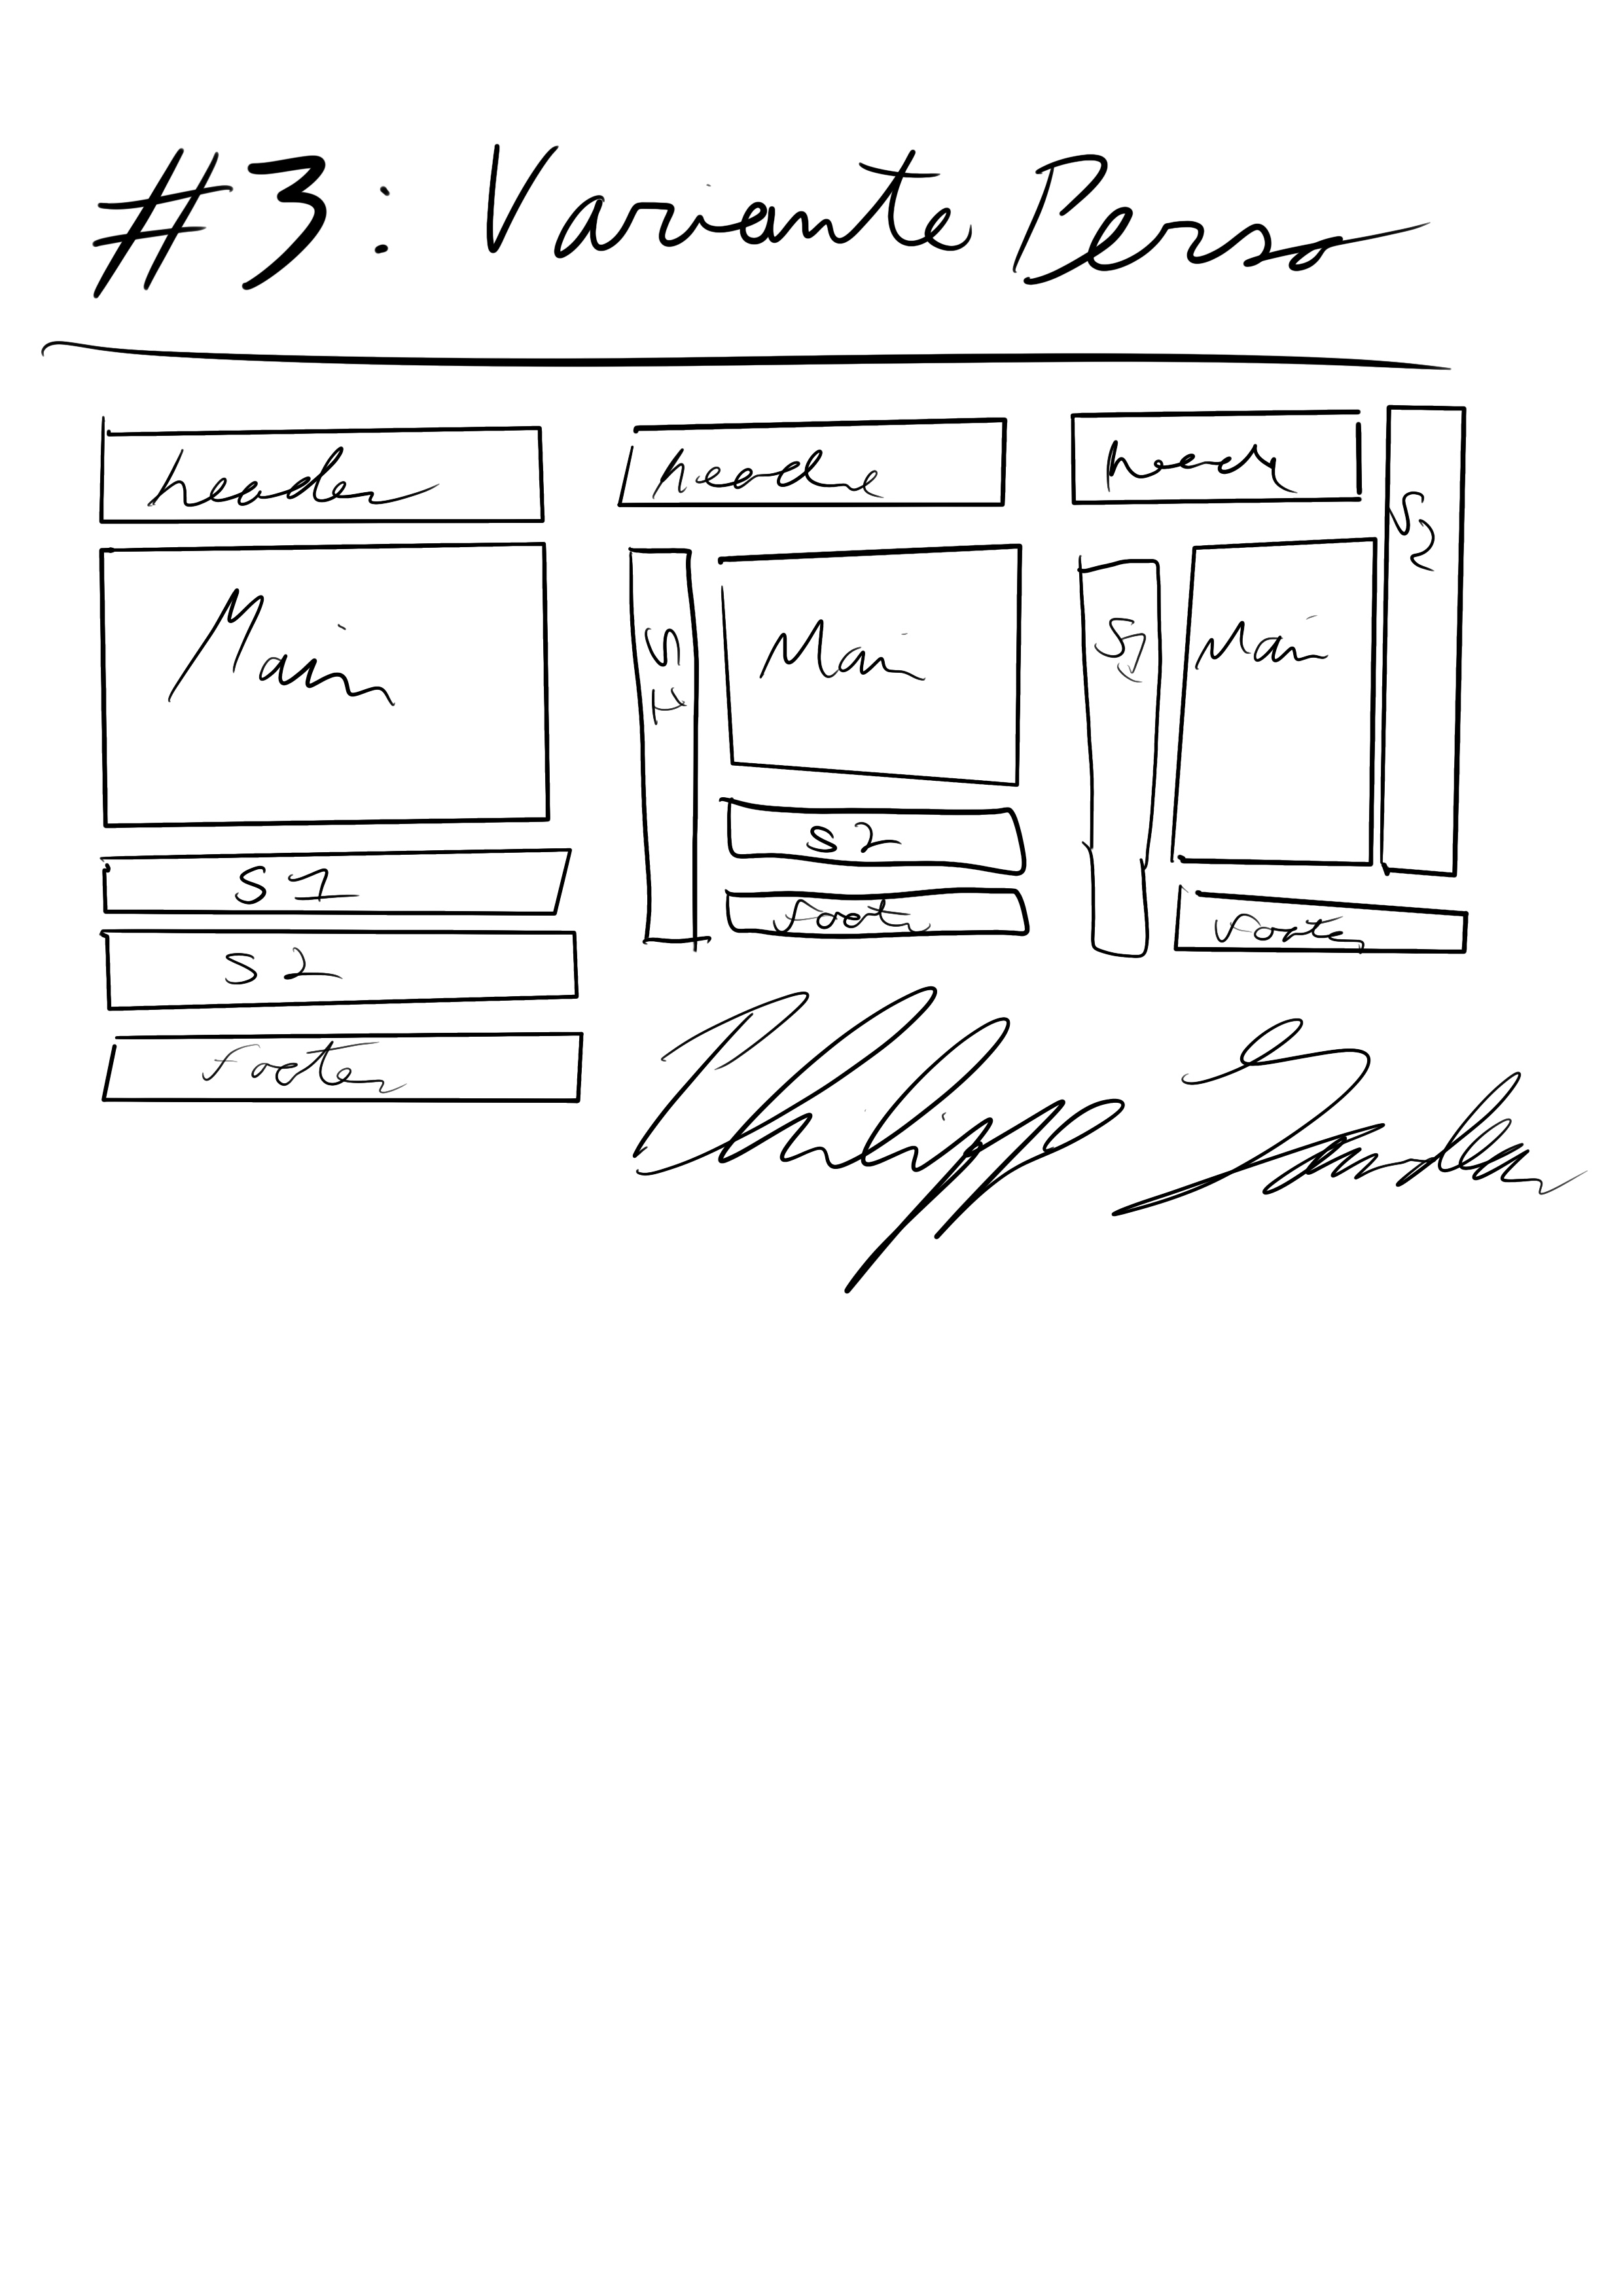 #3: Variente Perso
header
Main
S1
S2
Footer
header
S1
Main
S2
Footer
header
S1
Main
S2
Footer
Philipp